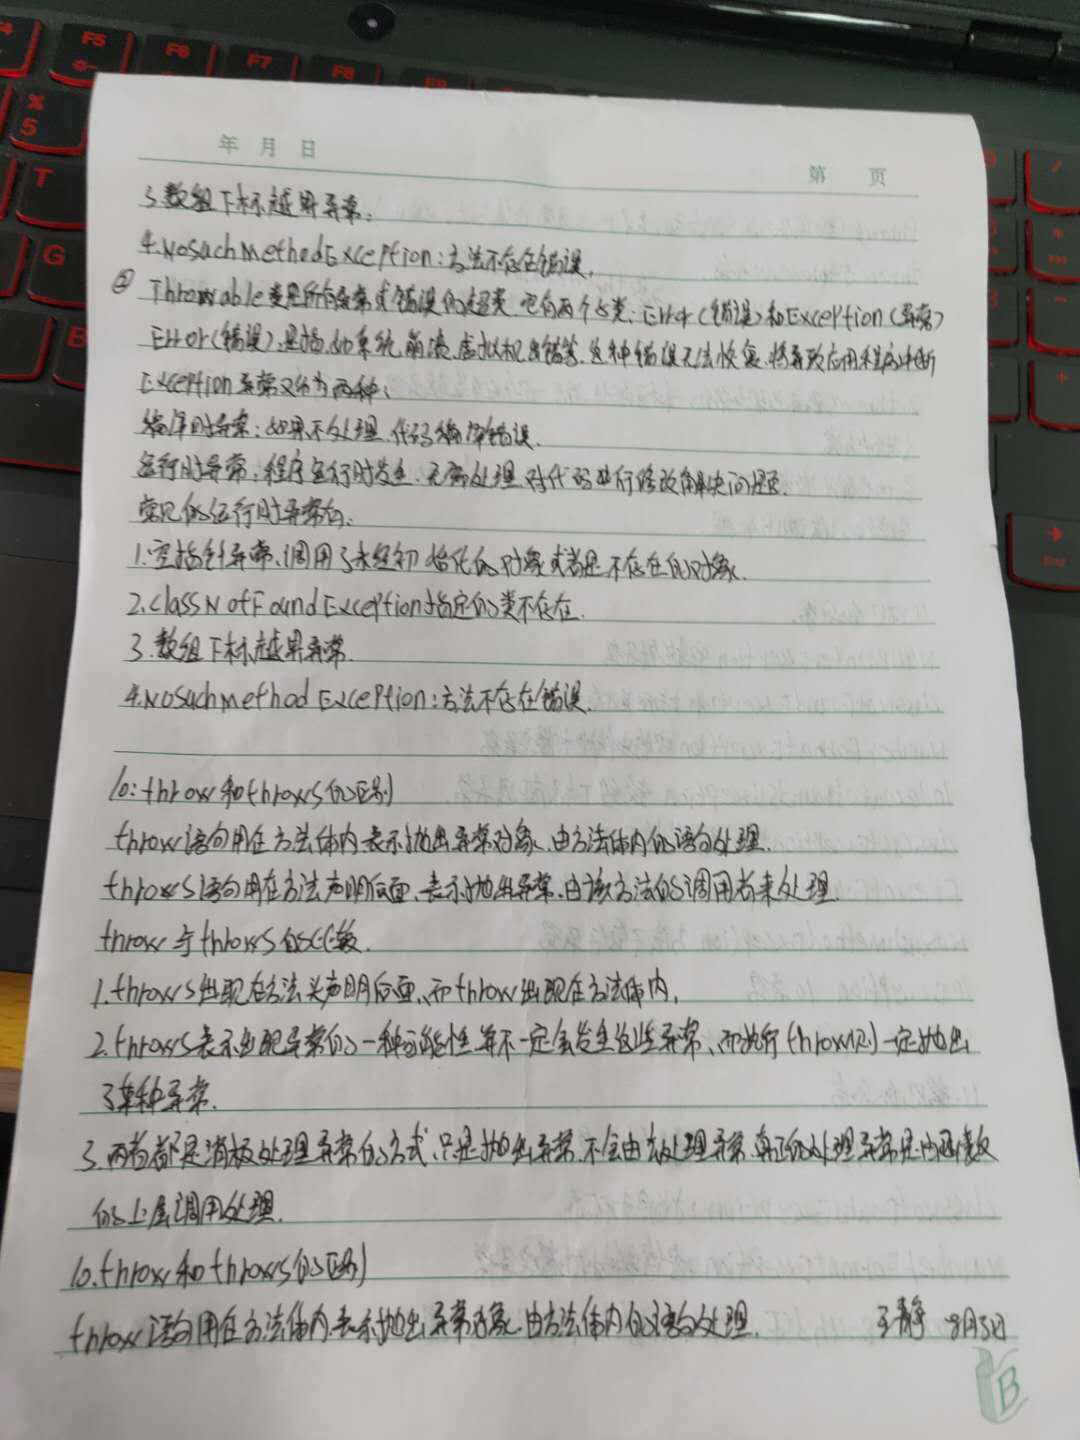 年 月 日
第 页
3.数组下标越界异常.
4.NosuchmethodException:方法不存在错误.
② Throwable类是所有异常或错误的超类.它有两个子类:Error(错误)和Exception(异常)
Error(错误):是指如系统崩溃.虚拟机出错等.这种错误无法恢复.将导致应用程序中断
Exception异常又分为两种:
编译时异常:如果不处理.代码编译错误.
运行时异常:程序运行时发生.无需处理.对代码进行修改解决问题.
常见的运行时异常有:
1.空指针异常.调用了未经初始化的对象或者是不存在的对象.
2.ClassNotFoundException指定的类不存在.
3.数组下标越界异常.
4.NosuchmethodException:方法不存在错误.
10:throw和throws的区别
throw语句用在方法体内.表示抛出异常对象.由方法体内的语句处理.
throws语句用在方法声明后面.表示抛出异常.由该方法的调用者来处理.
throw与throws的比较.
1.throws出现在方法头声明后面.而throw出现在方法体内.
2.throws表示出现异常的一种可能性.并不一定会发生这些异常.而执行throw则一定抛出
了某种异常.
3.两者都是消极处理异常的方式.只是抛出异常.不会由去处理异常.真正的处理异常是由函数
的上层调用处理.
10.throw和throws的区别
throw语句用在方法体内.表示抛出异常对象.由方法体内的语句处理. 王静 8月3日
B
F5
F6
F7
F8
%
5
T
G
B
End